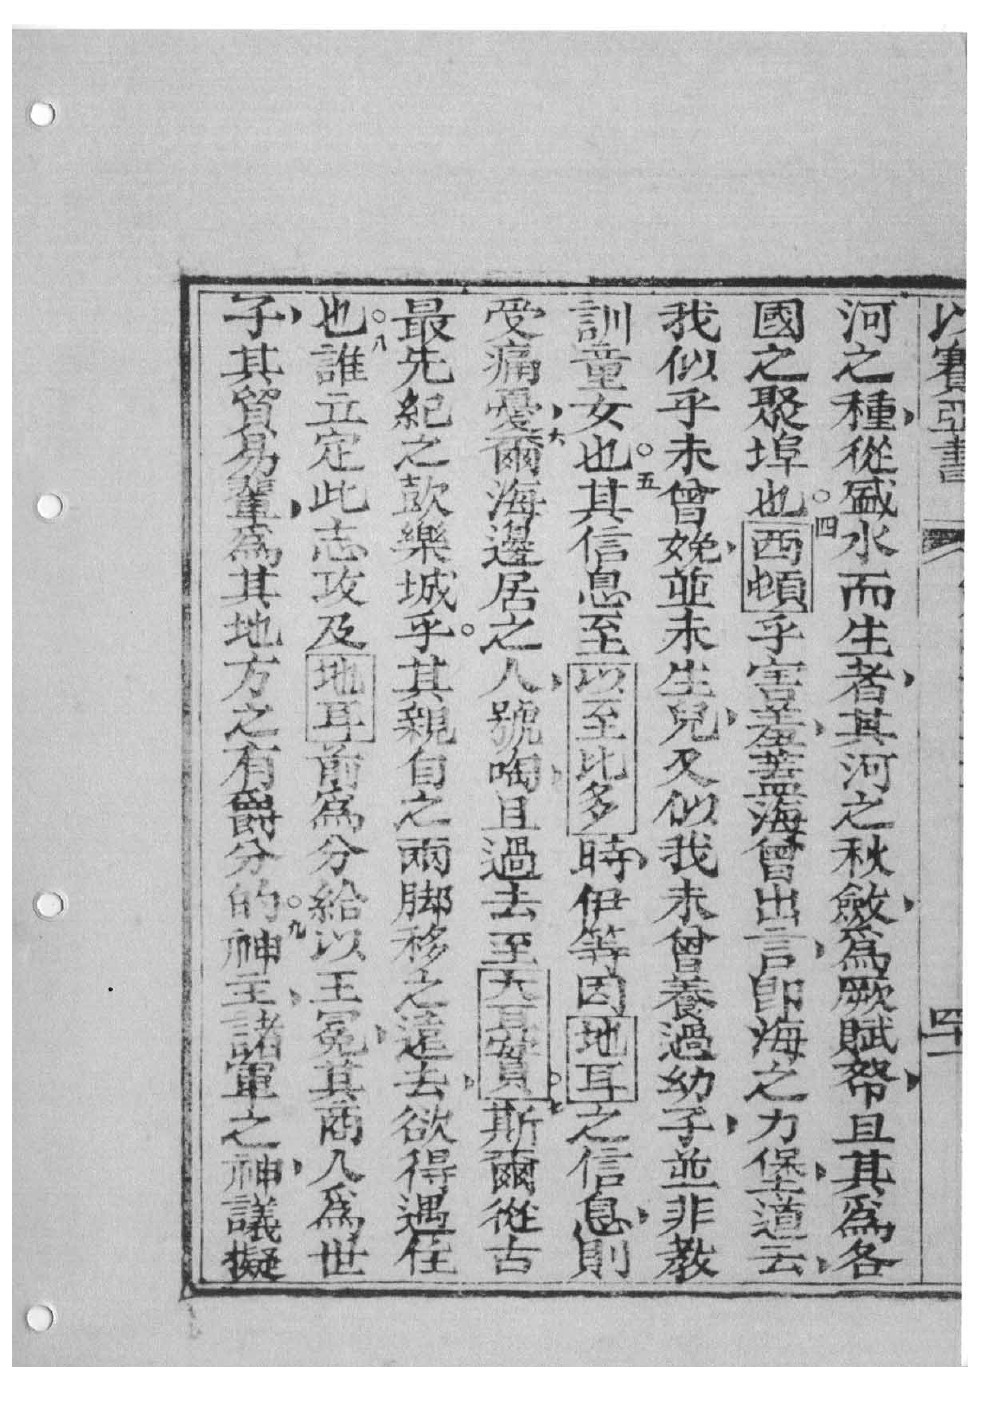 以賽亞書 四十一
河之種從盛水而生者其河之秋斂爲厥賦帑且其爲各
國之聚埠也○四西頓乎害羞葢海曾出言卽海之力堡道云
我似乎未曾娩並未生兒又似我未曾養過幼子並非教
訓童女也○五其信息至以至比多時伊等因地耳之信息則
受痛憂六爾海邊居之人號啕且過去至大耳實○七斯爾從古
最先紀之歡樂城乎○其親自之兩脚移之遠去欲得遇住
也○八誰立定此志攻及地耳前爲分給以王冕其商人爲世
子其貿易輩爲其地方之有爵分的○九神主諸軍之神議擬